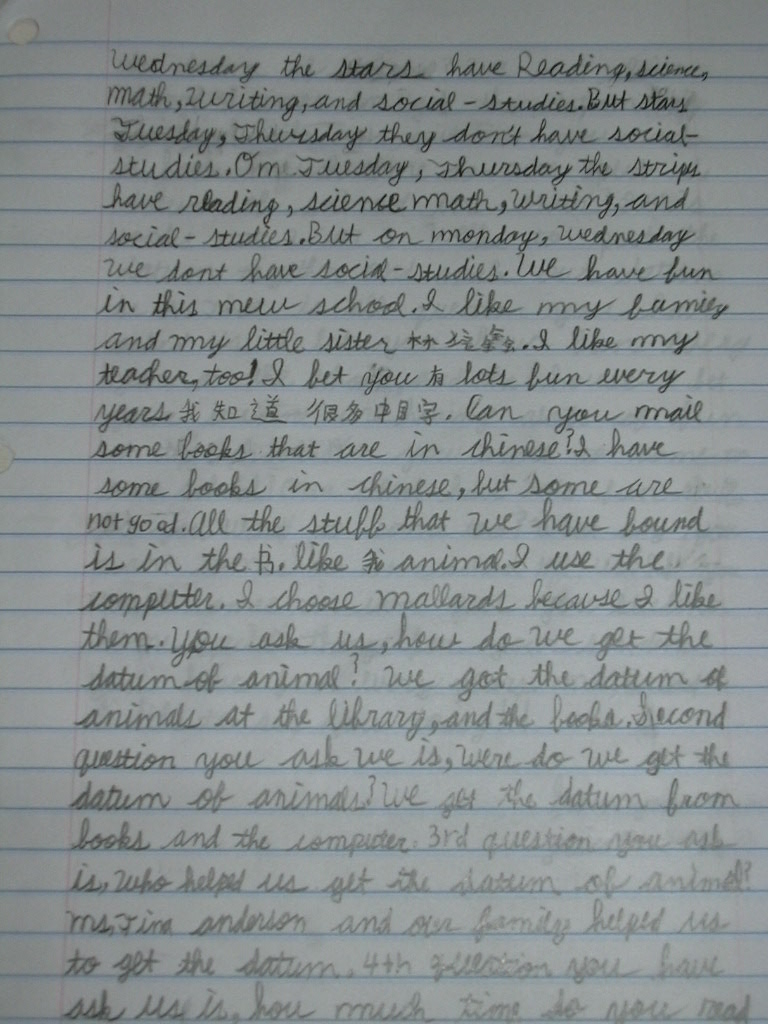 Wednesday the stars have Reading, science,
math, writing, and social-studies. But stars
Tuesday, Thursday they don't have social-
studies. On Tuesday, Thursday the strips
have reading, science math, writing, and
social-studies. But on monday, Wednesday
we dont have social-studies. We have fun
in this new school. I like my family
and my little sister 林. I like my
teacher, too! I bet you 有 lots fun every
years 我知道 很多中国字. Can you mail
some books that are in chinese? I have
some books in chinese, but some are
not good. All the stuff that we have found
is in the 书. like 我 animal. I use the
computer. I choose mallards because I like
them. You ask us, how do we get the
datum of animal? We got the datum of
animals at the library, and the books. Second
question you ask we is, were do we get the
datum of animals? We get the datum from
books and the computer. 3rd question you ask
is, Who helped us get the datum of animal?
Ms, Tina anderson and our family helped us
to get the datum. 4th question you have
ask us is, how much time do you read